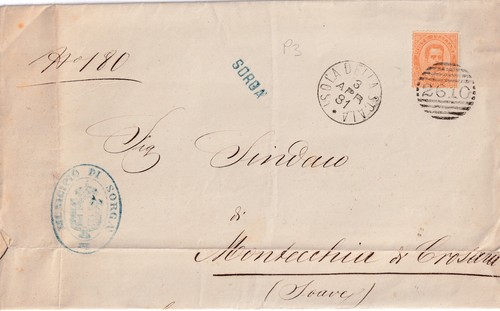 No 180
SORGÀ
P3
ISOLA DELLA SCALA
3
APR
81
2610
Sig Sindaco
di
MUNICIPIO DI SORGÀ
Montecchia di Crosara
(Soave)